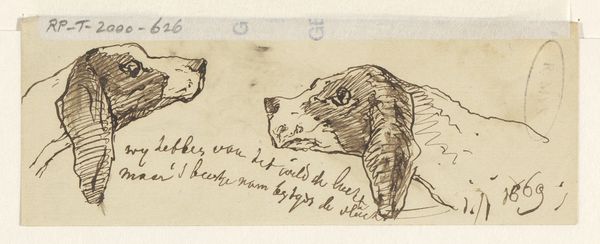 RP-T-2000-626
GE
wy hebben van het wild de lucht
maar 't beestje nam bytyds de vlucht
1869